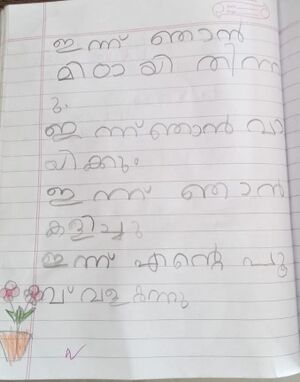 ഇന്ന് ഞാൻ
മിഠായി തിന്ന
ു.
ഇന്ന് ഞാൻ വാ
യിക്കും
ഇന്ന് ഞാൻ
കളിച്ചു
ഇന്ന് എന്റെ പൂ
വ് വളർന്നു